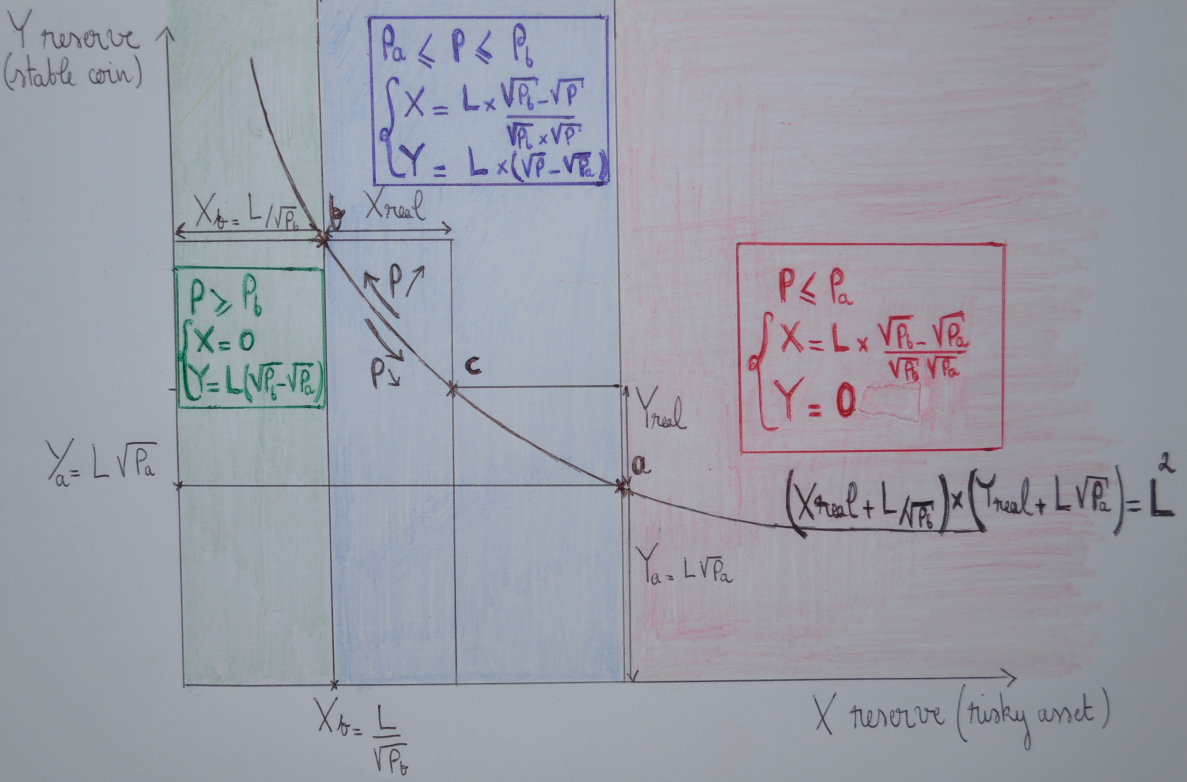 Y reserve
(stable coin)
Pa ≤ P ≤ Pb
X = L × (√Pb - √P) / (√Pb × √P)
Y = L × (√P - √Pa)
Xb = L/√Pb
b
Xreal
P ≥ Pb
X = 0
Y = L(√Pb - √Pa)
P ↗
P ↘
c
P ≤ Pa
X = L × (√Pb - √Pa) / (√Pb √Pa)
Y = 0
Yreal
a
Ya = L √Pa
(Xreal + L/√Pb) × (Yreal + L √Pa) = L²
Ya = L √Pa
Xb = L / √Pb
X reserve (risky asset)